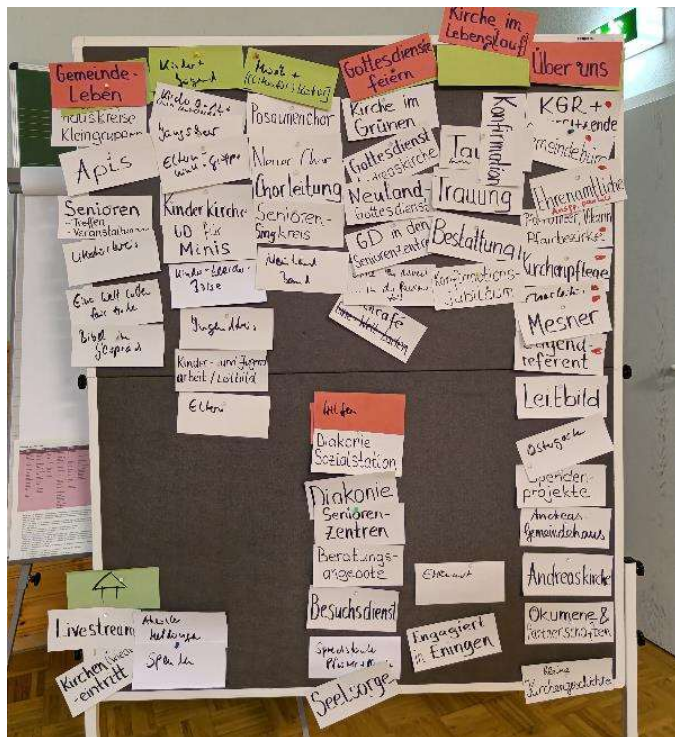 Gemeinde-
Leben
Hauskreise
Kleingruppen
Apis
Senioren
- Treffen
- Veranstaltungen
Eine Welt Laden
Bibel im
Gespräch
Kinder +
Jugend
Jungschar
Eltern-
Kind-Gruppe
Kinderkirche
GD für
Minis
Kinder-Kleider-
Börse
Jugendkreis
Kinder- und Jugend
arbeit / Leitbild
Eltern
Musik +
Posaunenchor
Neuer Chor
Chorleitung
Senioren-
Singkreis
Neuland
Band
Gottesdienste
feiern
Kirche im
Grünen
Gottesdienst
Andreaskirche
Neuland
Gottesdienst
GD in den
Seniorenzentren
Kirche im
Lebenslauf
Tau
Konfirmation
Trauung
Bestattung
Konfirmations-
jubiläum
Über uns
KGR +
Vorsitzende
Gemeindebüro
Ehrenamtliche
Ansp.partner
Pfarrbezirke
Kirchenpflege
Mesner
Jugend-
referent
Leitbild
Ostergarten
Spenden-
projekte
Andreas
Gemeindehaus
Andreaskirche
Ökumene &
Partnerschaften
Kleine
Kirchengeschichte
Helfen
Diakonie
Sozialstation
Diakonie
Senioren-
Zentren
Beratungs-
angebote
Besuchsdienst
Seelsorge
Ehrenamt
Engagiert
in Eningen
Livestream
Kirchen
eintritt
Aktuelle
Meldungen
Spenden